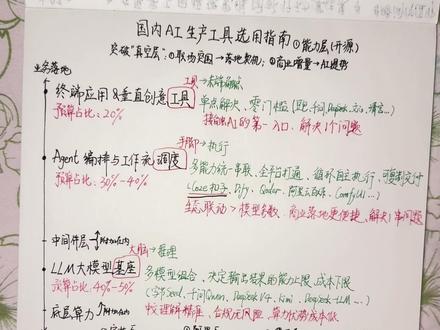 国内AI生产工具选用指南①能力层(开源)
突破"真空层":①职场突围→落地契机;②商业增量→AI趋势
业务落地
工具→
终端应用&垂直创意工具
单点解决、零门槛(
预算占比:20%
接触AI的第一入口,解决1个问题
手脚→执行
Agent编排与工作流调度
多能力统一串联、全平台打通、循环自主执行、可复制交付
预算占比:30%-40%
(Coze扣子、Dify、Qoder、阿里云百炼、ComfyUI...)
生态联动>模型参数、商业落地更便捷,解决1串问题
中间件层
大脑→推理
LLM大模型基座
多模型组合、决定输出结果的能力上限、成本下限
预算占比:40%-50%
(字节Seed、千问Qwen、DeepSeek V4、Kimi、DeepSeek-LLM...)
底层算力
校理解精准、合规无风险、算力优势成本低